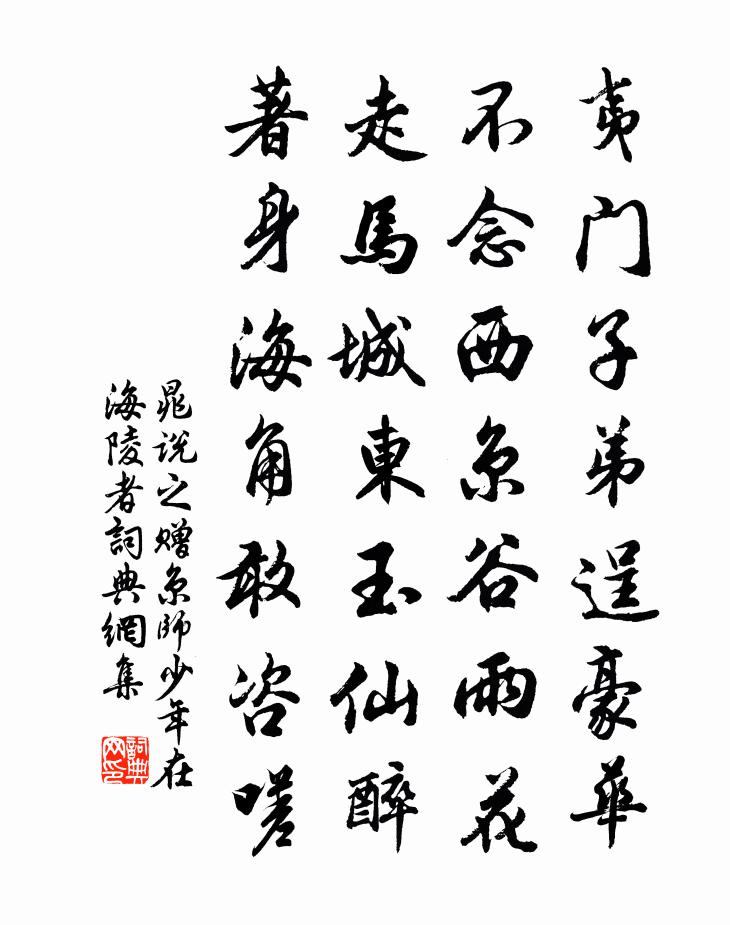 夷门子弟逞豪華
不念西京谷雨花
走馬城東玉仙醉
著身海角敢咨嗟
晁説之赠京師少年在
海陵者詞典網集
詞典
网印